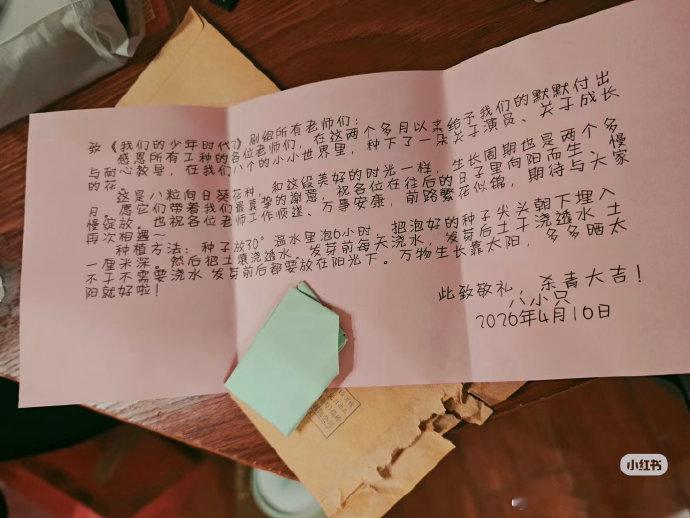 致《我们的少年时代》剧组所有老师们：
感恩所有工种的各位老师们，在这两个多月以来给予我们的默默付出
与耐心教导，在我们八个的小小世界里，种下了一朵关于演员、关于成长
的花。
这是八粒向日葵花种，和这段美好的时光一样，生长周期也是两个多
月，愿它们带着我们最真挚的谢意，祝各位在往后的日子里向阳而生、慢
慢绽放。也祝各位老师工作顺遂、万事安康，前路繁花似锦，期待与大家
再次相遇~
种植方法：种子放30°温水里泡6小时，把泡好的种子尖头朝下埋入
一厘米深，然后把土壤浇透水。发芽前每天浇水，发芽后土干浇透水，土
不干不需要浇水，发芽前后都要放在阳光下。万物生长靠太阳，多多晒太
阳就好啦！
此致敬礼，杀青大吉！
八小只
2026年4月10日
小红书